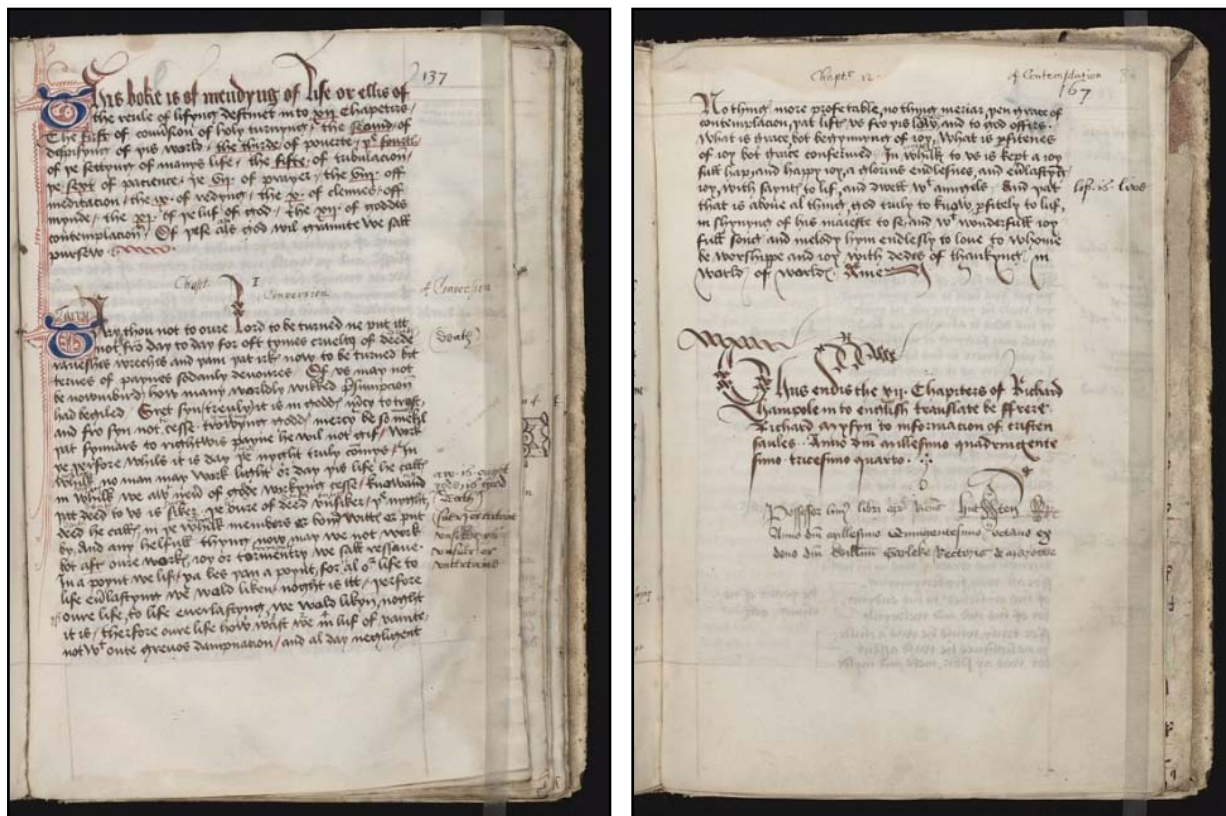 137
This boke is of mendyng of life or ellis of
the reule of lifyng destinct in to xii Chapeters
The first of conversion of holy turnyng / the second of
dispisyng of þis world / the thirde of pouerte / þe fourth
of þe settyng of manys life / the fifte of tribulacion /
þe sext of pacience / þe vii of prayer / the viii off
meditacion / the ix of redyng / the x of clennes off
mynde / the xi of þe luf of god / the xii of goddis
contemplacion Of þese als god wil graunte we sall
pursew
Chapt I
Conversion
of Conversion
Tary thou not to oure lord to be turned ne put itt
not fro day to day for oft tymes cruelty of deede
death
wreches and þam þat irk now to be turned bit
ternes of paynes sodanly deuoures Of vs may not
be nowmbyrd how many worldly wikked
had begiled Gret syn treuly it is in mercy to trest
and fro syn not cesse trowyng mercy be so mekil
þat synnars to rightwis payne he wil not gif / work
ȝe þerfore whils it is day þe nyght truly comys / In
whilk no man may work light or day þis life he calls
in whilk we neuer of gode workyng cesse / knawand
þat deed to vs is siker þe oure of deed vnsiker / þe nyght
deed he calls in þe whilk members er bond er put
by, and any helfull thyng now may we not work
bot aft oure works, ioy or tormentry we sall ressaue
In a poynt we lif / ȝa les þan a poynt, for al oure life to
life endlastyng we wald liken, noght is itt / þerfore
oure life, to life everlastyng, we wald likyn, noght
it is / therfore oure life how wast we in luf of vanite,
not wt oute grevos dampnation / and al day negligent
Chapt 12
of Contemplation
167
No thing more profetable, no thyng meriar, þen grace of
contemplacion, þat lifts vs fro þis law, and to god offirs
What is grace bot begynnyng of ioy, What is pfitenes
of ioy bot grace confermed In whilk to vs is kept a ioy
full hap, and happy ioy, a glorius endlesnes, and endlastyng
ioy, with saynts to lif, and dwell wt aungels And þat
lif is love
that is aboue al thing, god truly to know pfitely to lif,
in shynyng of his maieste to se, and wt wonderfull ioy
full song and melody hym endlesly to loue to whome
be worshippe and ioy with dedes of thankyng in
world of worlds Ame
Thus endis the xii Chapiters of Richard
hampole in to english translate be ffrere
Richard mysyn to informacion of cristen
saules Anno dni millesimo quadringente
simo tricesimo quarto
Possessor libri
Anno dni millesimo quingentesimo octauo ex
dono dni Willim Rectoris de